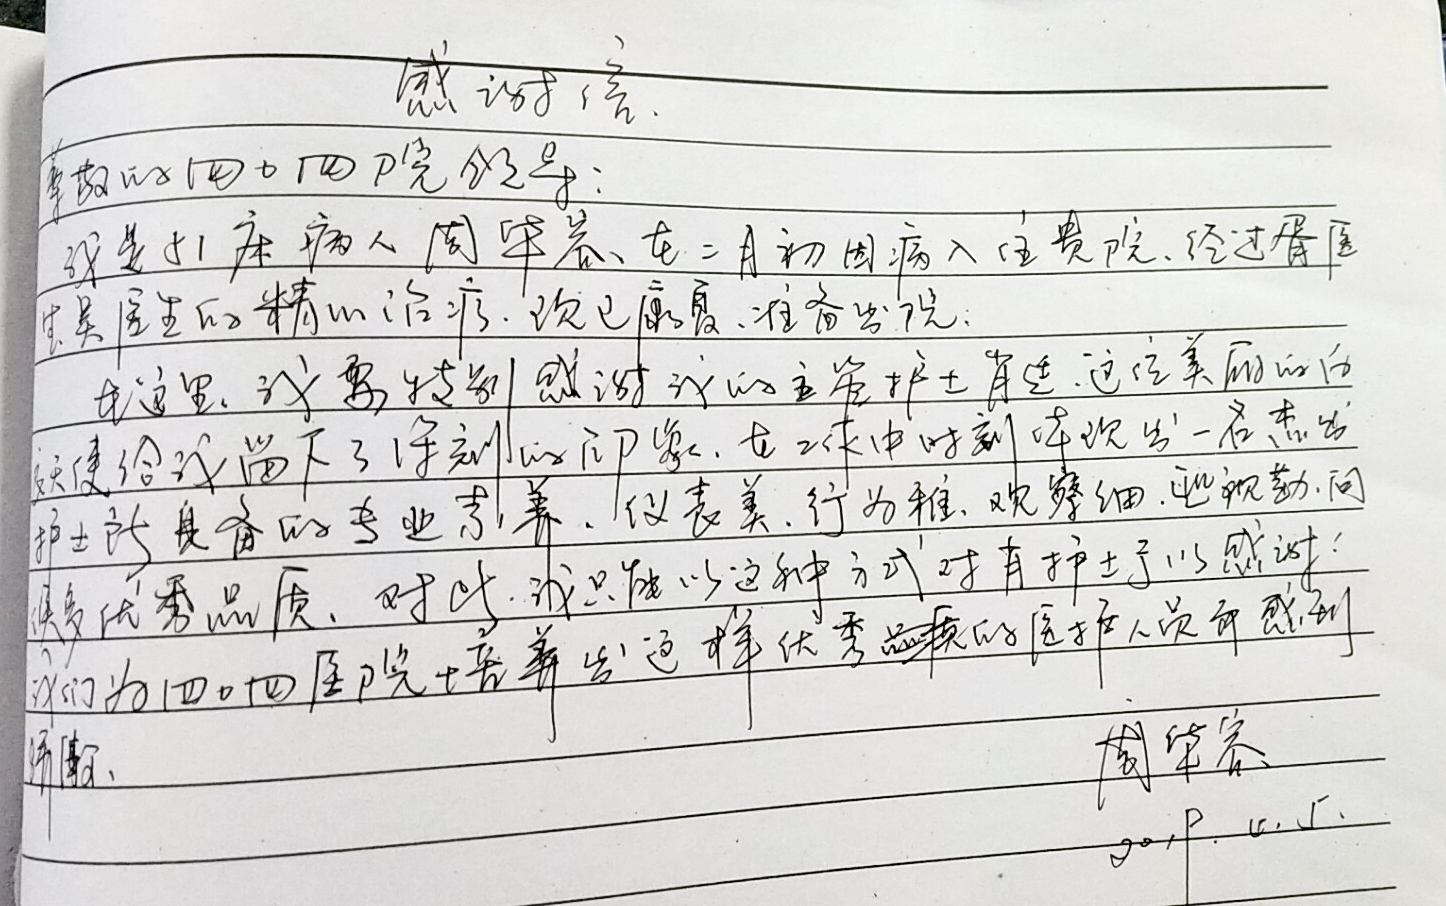 感谢信.
尊敬的四0四院领导:
我是51床病人周华容、在二月初因病入住贵院、经过胥医
生吴医生的精心治疗、现已康复、准备出院;
在这里、我要特别感谢我的主管护士肖廷、这位美丽的白
衣天使给我留下了深刻的印象、在工作中时刻体现出一名杰出
护士所具备的专业素养、仪表美、行为雅、观察细、巡视勤、问
候多优秀品质、对此、我只能以这种方式对肖护士予以感谢!
我们为四0四医院培养出这样优秀品质的医护人员而感到
骄傲、
周华容
2019.4.5.